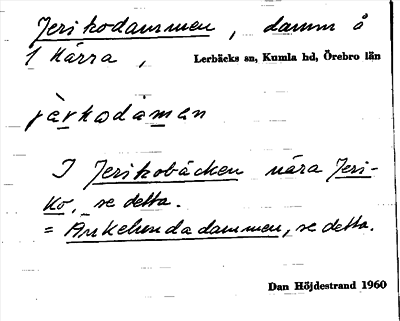 Jerikodammen, damm å
1 Kårra, Lerbäcks sn, Kumla hd, Örebro län
jèrkodàmen
I Jerikobäcken nära Jeri-
ko, se detta.
= Ankehendadammen, se detta.
Dan Höjdestrand 1960